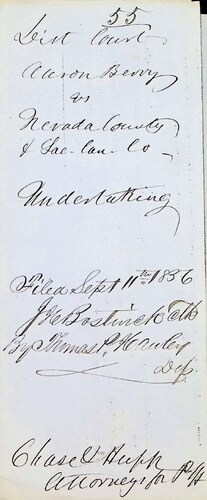 55
Dist Court
Aaron Berry
vs
Nevada County
& Sac. Can. Co
Undertaking
Filed Sept 11th 1856
J H Bostwick Clk
By Thomas P. Hawley
Dep
Chase &
Attorneys for Plff